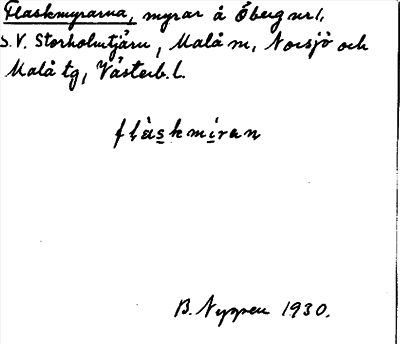 Flaskmyrarna, myrar å Öberg nr 1,
S.V. Storholmtjärn, Malå m, Norsjö och
Malå tg, Västerb. l.
flàskmíran
B. Nyppen 1930.